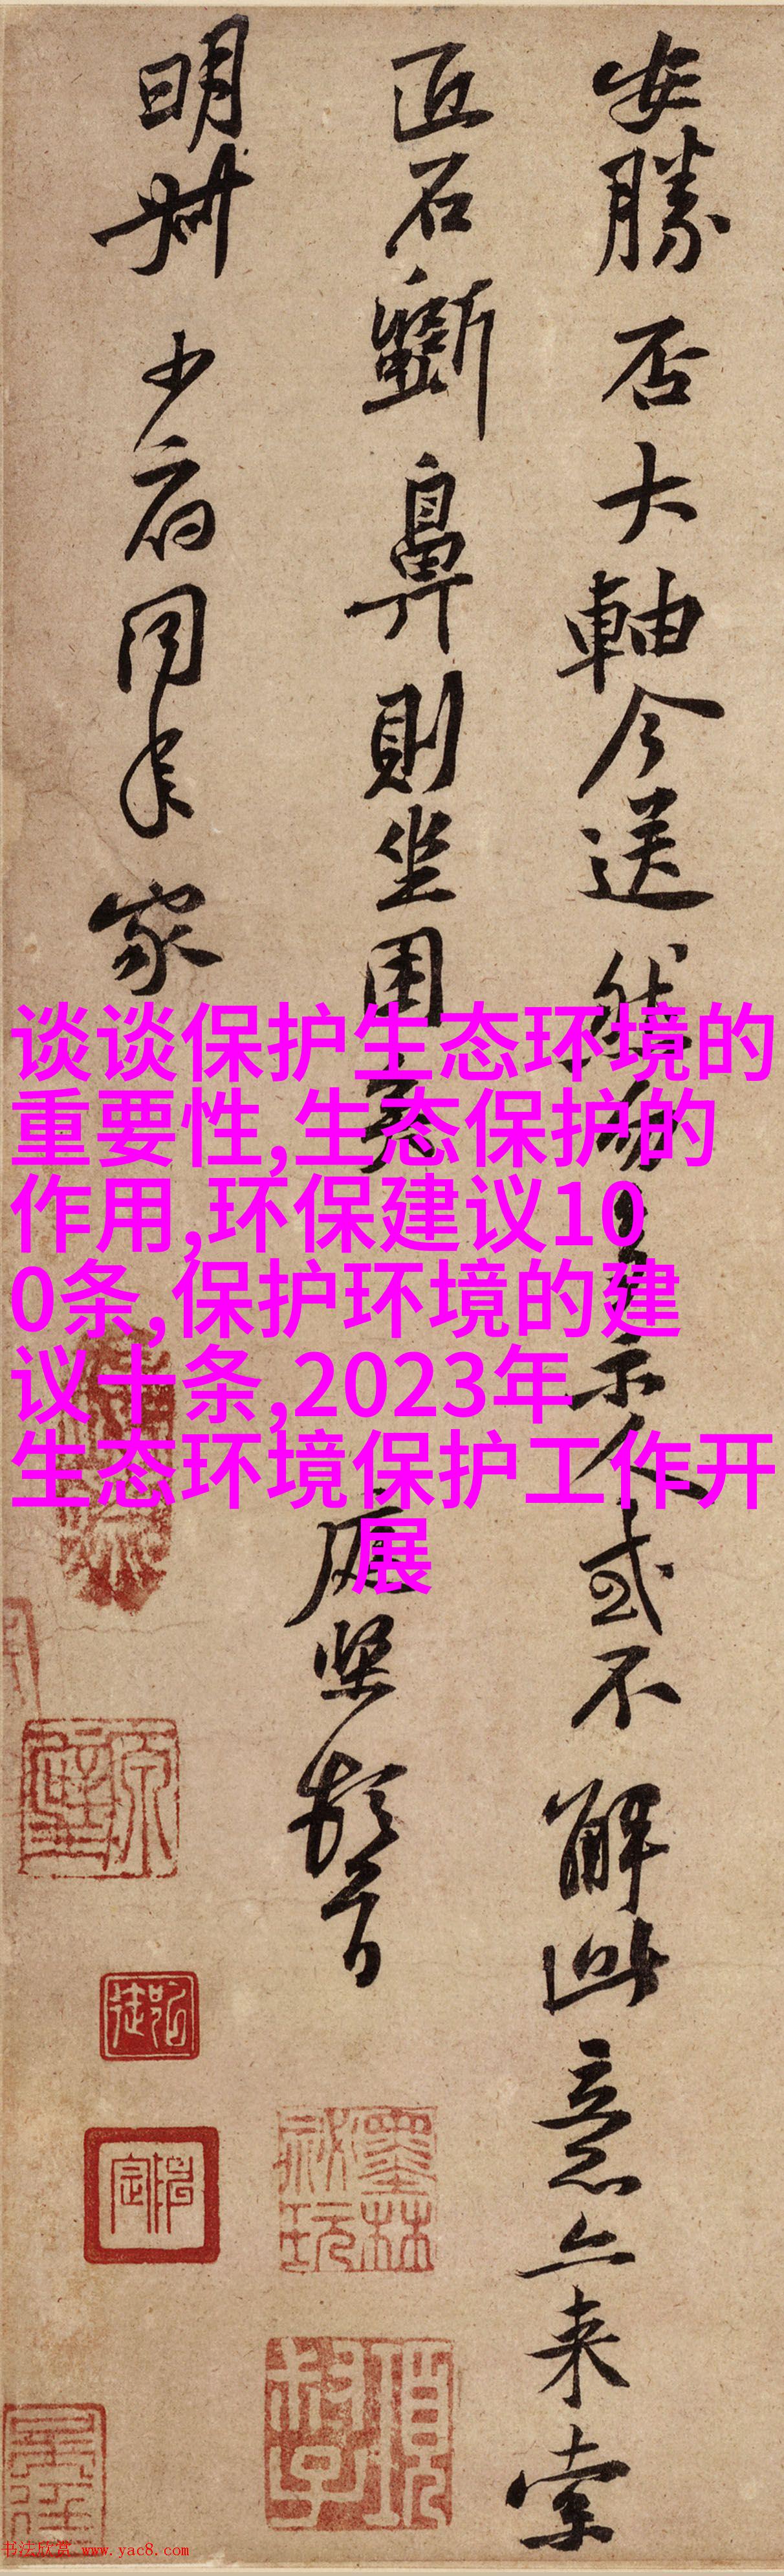 安勝否大軸今送然勿多示人或不解此意亦来索
匠石斲鼻則坐困矣庭堅頓首
明叔少府同年家
谈谈保护生态环境的
重要性,生态保护的
作用,环保建议10
0条,保护环境的建
议十条,2023年
生态环境保护工作开
展
墨林祕玩
书法欣赏 www.yac8.com